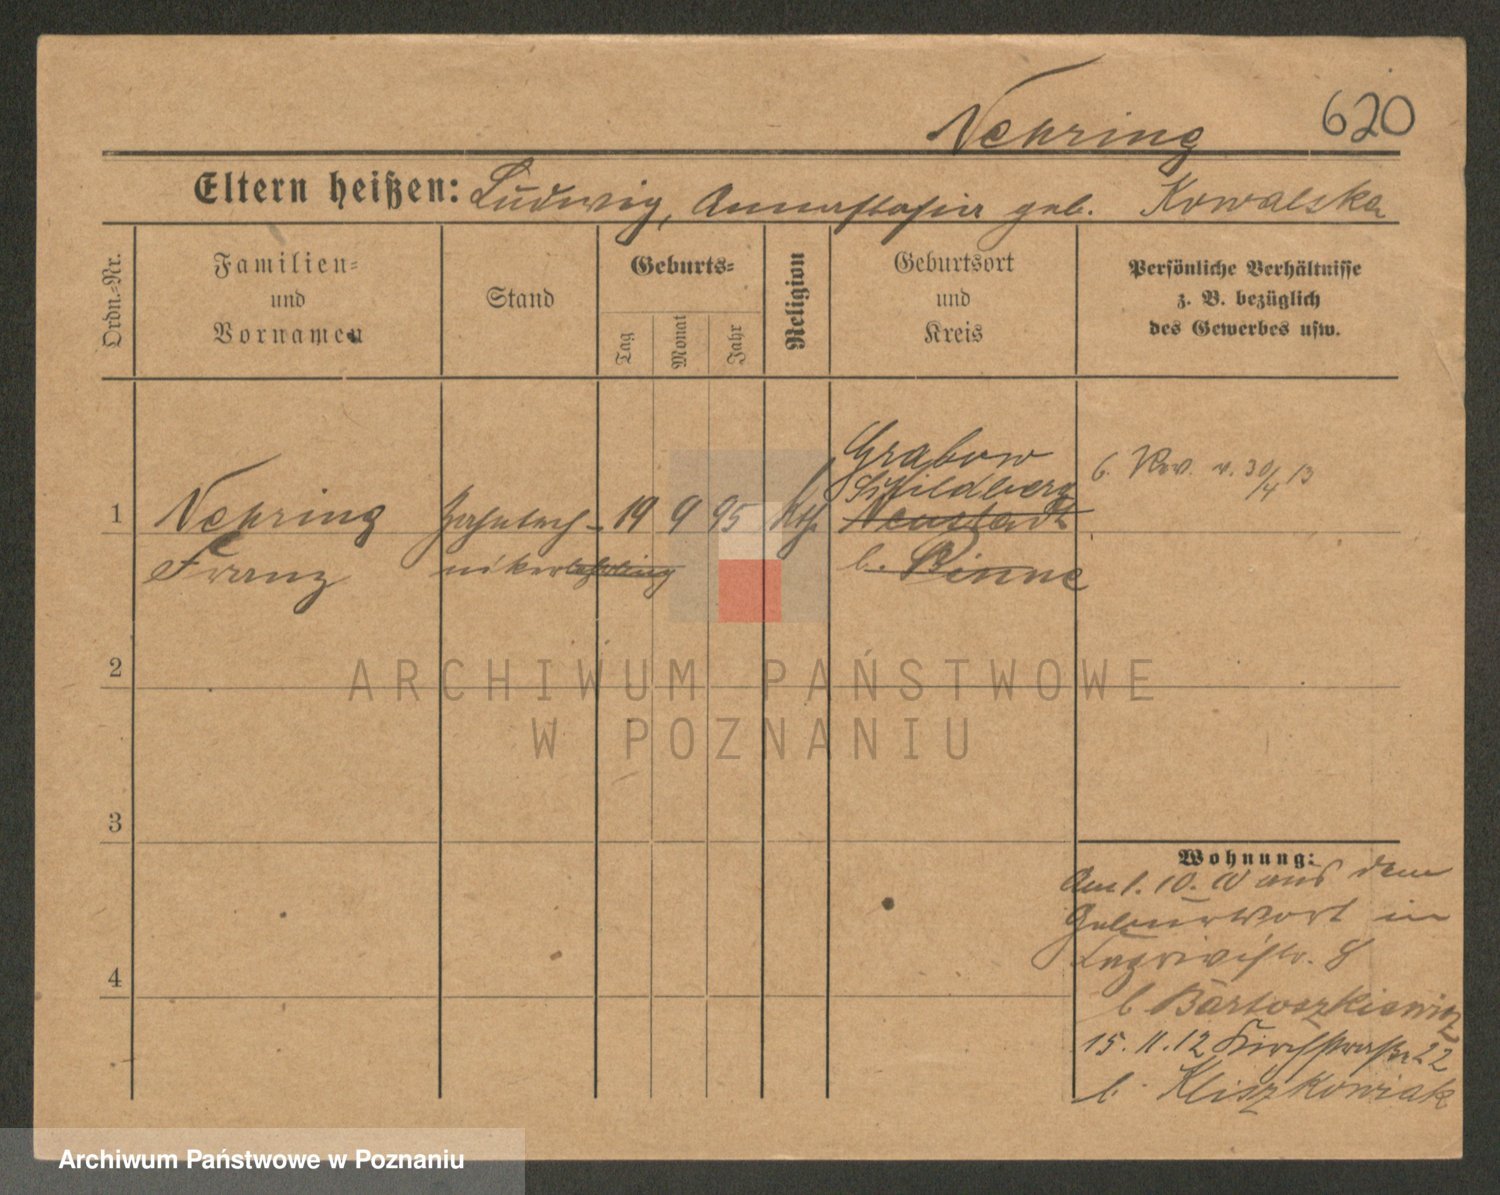 620
Nehring
Eltern heißen: Ludwig, Annastasia geb. Kowalska
Ordn.-Nr.
Familien-
und
Vornamen
Stand
Geburts-
Tag
Monat
Jahr
Religion
Geburtsort
und
Kreis
Persönliche Verhältnisse
z. B. bezüglich
des Gewerbes usw.
Grabow
Schildberg
1 Nehring Zahntech- 19 9 95 Kth Neustadt
Franz nikerlehrling b. Pinne
6. v. 30/4 13
2
3
4
Wohnung:
Am 1. 10. aus dem
Geburtsort in
8
b Bartoszkiewicz
15. 11. 12 Kirchstraße 22
b. Kliszkowiak
ARCHIWUM PAŃSTWOWE
W POZNANIU
Archiwum Państwowe w Poznaniu